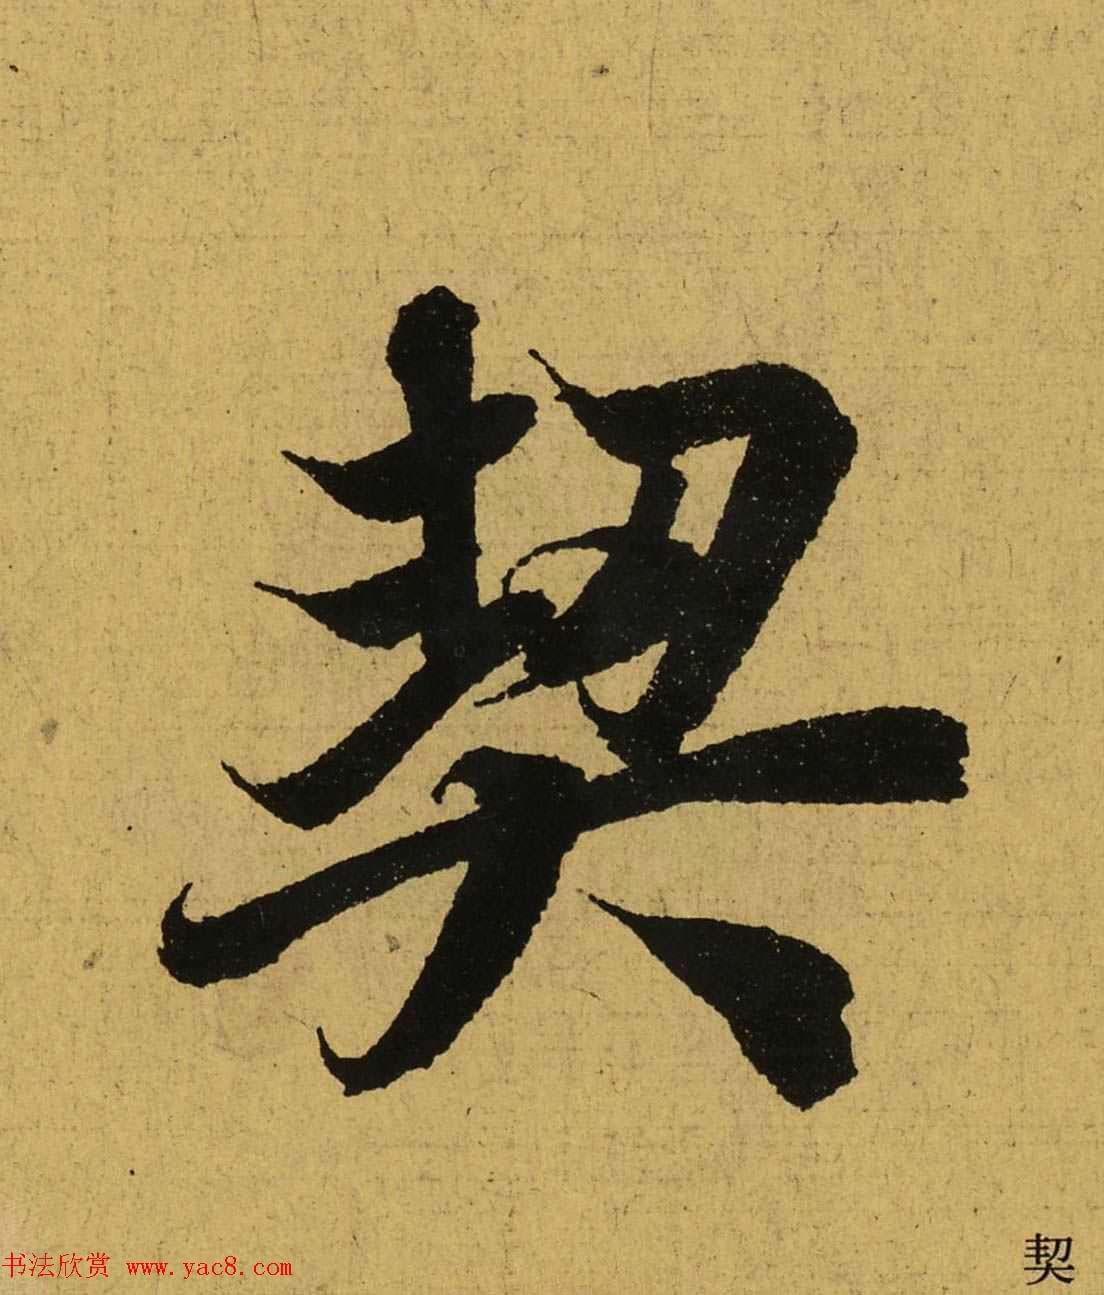 契
书法欣赏 www.yac8.com
契